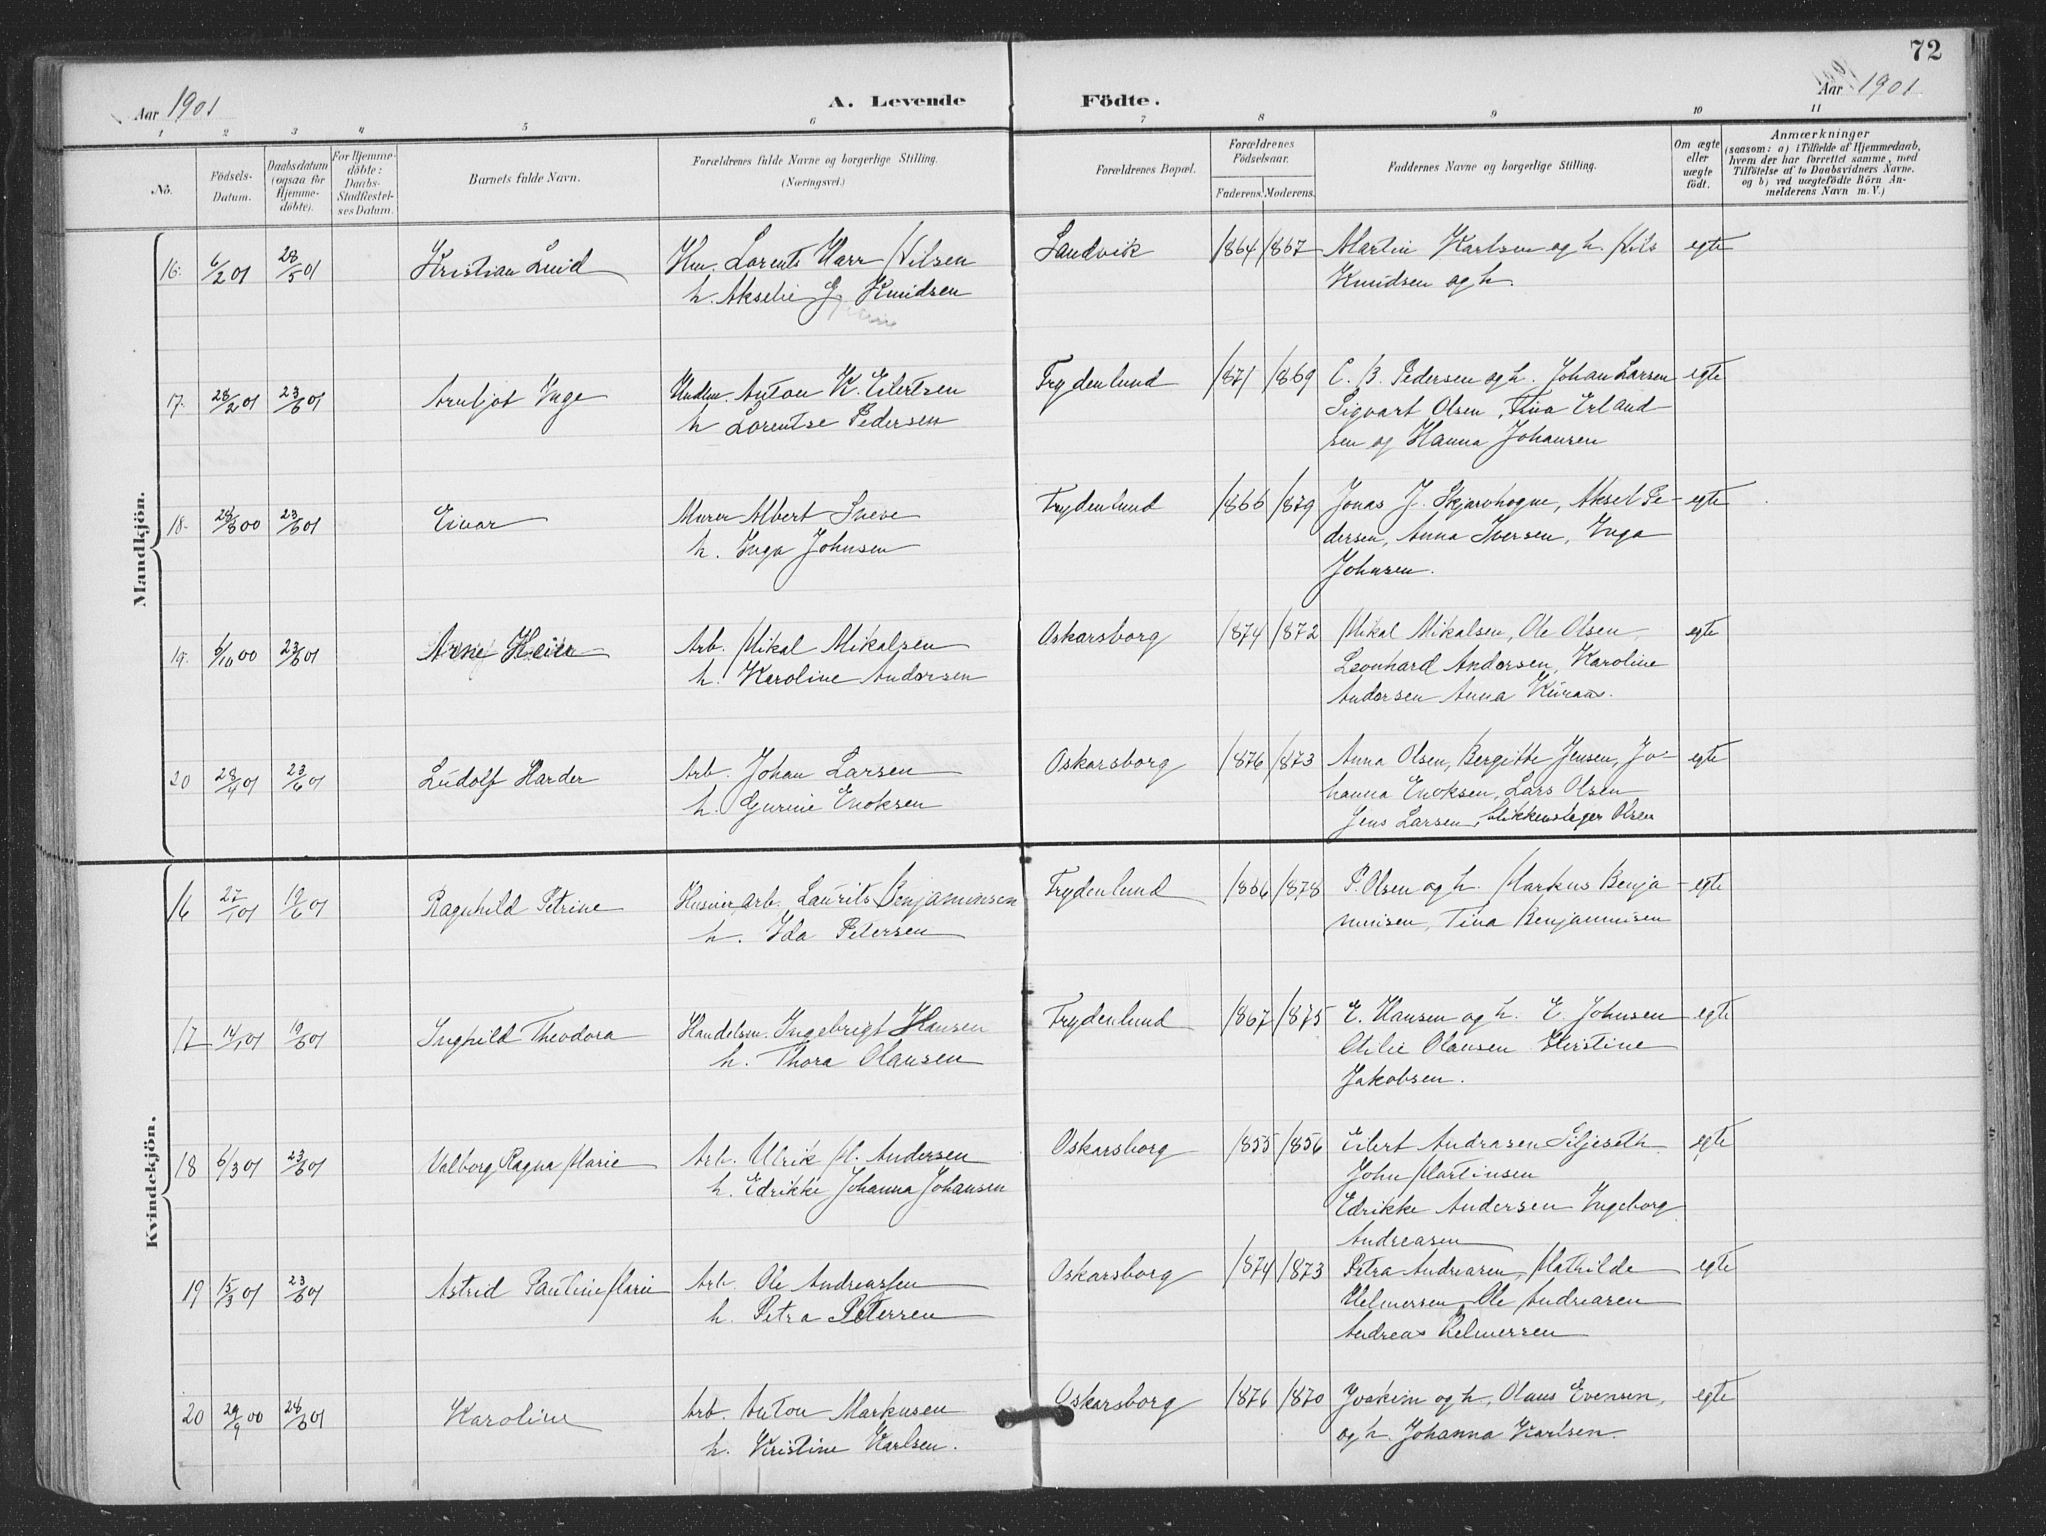 72
Aar 1901
A. Levende Födte.
Aar 1901
1 2 3 4 5 6 7 8 9 10 11
No.
Födsels-Datum.
Daabsdatum (ogsaa for Hjemme-döbte).
For Hjemme-döbte: Daabs-Stadfæstel-ses Datum.
Barnets fulde Navn.
Forældrenes fulde Navne og borgerlige Stilling.
(Næringsvei.)
Forældrenes Bopæl.
Forældrenes Födselsaar.
Faderens. Moderens.
Faddernes Navne og borgerlige Stilling.
Om ægte eller uægte födt.
Anmærkninger
(saasom: a) i Tilfælde af Hjemmedaab,
hvem der har forrettet samme, med
Tilföielse af to Daabsvidners Navne,
og b) ved uægtefödte Börn An-
melderens Navn m. V.)
Mandkjön.
16. 6/2 01 28/5 01 Kristian Luid Hm. Lorents Harr Nilsen Sandvik 1864 1867 Martin Karlsen og h. Nils egte
h. Akselie G Knudsen Knudsen og h.
17. 28/2 01 23/6 01 Arnljot Inge Anton K. Eilertsen Frydenlund 1871 1869 C. B. Pedersen og h. Johan Larsen egte
h Lorentse Pedersen Sigvart Olsen, Tina Erland
sen og Hanna Johansen
18. 28/8 00 23/6 01 Einar Murer Albert Sneve Frydenlund 1866 1879 Jonas J. Skjævhogne, Aksel Pe- egte
h. Inga Johnsen dersen, Anna Iversen, Inga
Johnsen.
19. 6/10 00 23/6 01 Arne Heier Arb. Mikal Mikalsen Oskarsborg 1874 1872 Mikal Mikalsen, Ole Olsen egte
h. Karoline Andersen Leonhard Andersen, Karoline
Andersen Anna
20 28/4 01 23/6 01 Ludolf Harder Arb. Johan Larsen Oskarsborg 1876 1873 Anna Olsen, Bergitte Jensen, Jo- egte
h. Gurine Enoksen hanna Enoksen, Lars Olsen
Jens Larsen, blikkenslager Olsen
Kvindekjön.
16 27/1 01 19/6 01 Ragnhild Petrine Husm. arb. Laurits Benjaminsen Frydenlund 1866 1878 P. Olsen og h. Markus Benja- egte
h. Ida Petersen minsen, Tina Benjaminsen
17 14/1 01 19/6 01 Inghild Theodora Handelsm. Ingebrigt Hansen Frydenlund 1867 1875 E. Hansen og h. E. Johnsen egte
h. Thora Olausen Otilie Olausen Kristine
Jakobsen.
18 6/3 01 23/6 01 Valborg Ragna Marie Arb. Ulrik M. Andersen Oskarsborg 1855 1856 Eilert Andrasen Siljeseth egte
h. Edrikke Johanna Johansen John Martinsen
Edrikke Andersen Ingeborg
Andreasen
19 15/3 01 23/6 01 Astrid Pauline Marie Arb. Ole Andreassen Oskarsborg 1874 1873 Petra Andreasen, Mathilde egte
h. Petra Petersen Helmersen Ole Andreasen
Andreas Helmersen
20 29/9 00 28/6 01 Karoline Arb. Anton Markusen Oskarsborg 1876 1870 Joakim og h, Olaus Evensen, egte
h. Kristine Karlsen. og h. Johanna Karlsen.